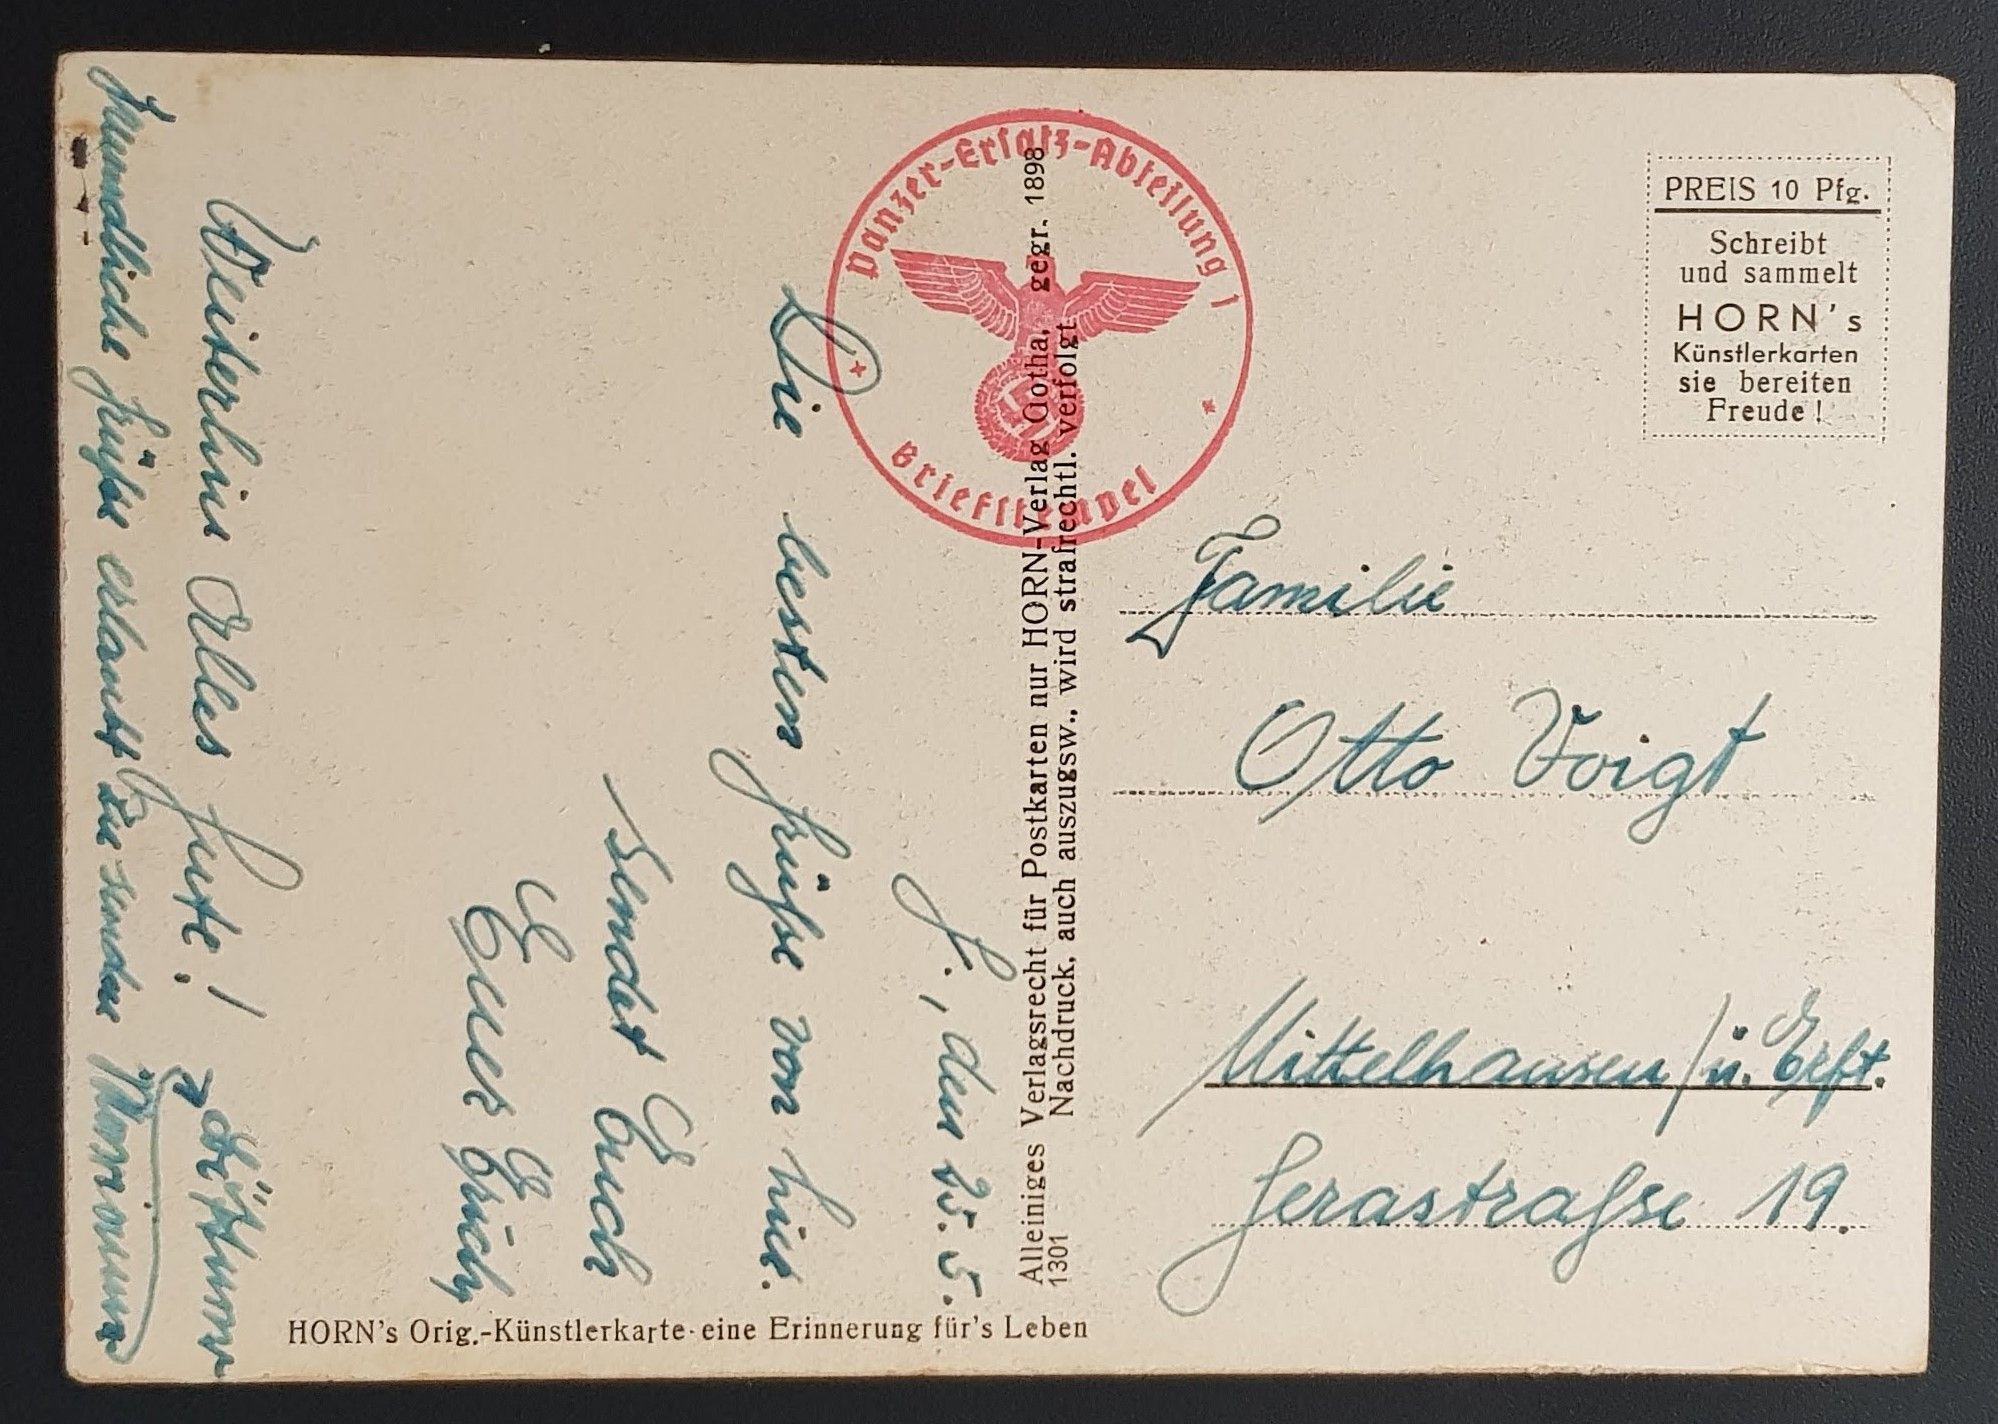 G., den 25.5.
Die besten Grüße von hier
sendet Euch
Euer Erich
Weiterhin Alles Gute!
Freundliche Grüße erlaubt zu senden
Panzer-Ersatz-Abteilung 1
Briefstempel
Alleiniges Verlagsrecht für Postkarten nur HORN-Verlag Gotha, gegr. 1898
1301 Nachdruck, auch auszugsw., wird strafrechtl. verfolgt
HORN's Orig.-Künstlerkarte-eine Erinnerung für's Leben
PREIS 10 Pfg.
Schreibt
und sammelt
HORN's
Künstlerkarten
sie bereiten
Freude!
Familie
Otto Voigt
Mittelhausen / ü. Erft.
Gerastraße 19.